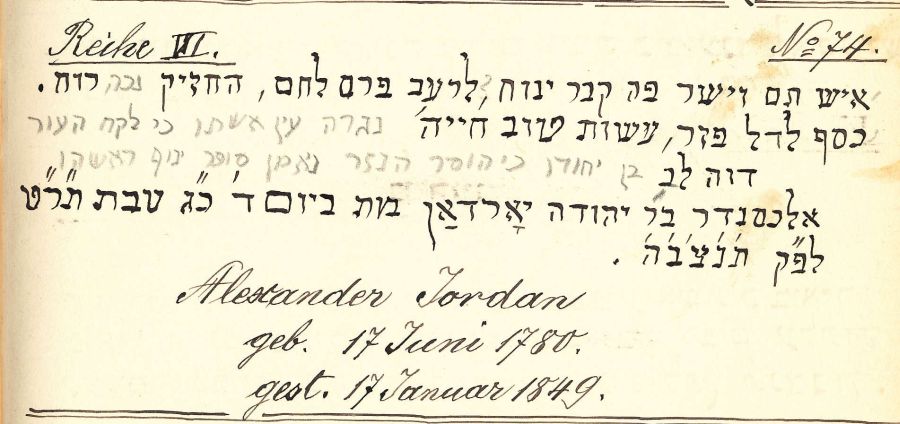 Reihe VI. No 74.
איש תם וישר פה קבר ינוח, לרעב פרס לחם, החזיק נכה רוח.
כסף לדל פזר, עשות טוב חייה' נגרה עין אשתו כי לקח העור
דוה לב בן יהודן כי הוסר הנזר נאמן סופר ינוף ראשהו
אלכסנדר ב׳ר יהודה יאָרדאַן מת ביום ד׳ כ״ג טבת ת״ר״ט
לפ״ק ת׳נ׳צ׳ב׳ה׳ .
Alexander Jordan
geb. 17 Juni 1780.
gest. 17 Januar 1849.